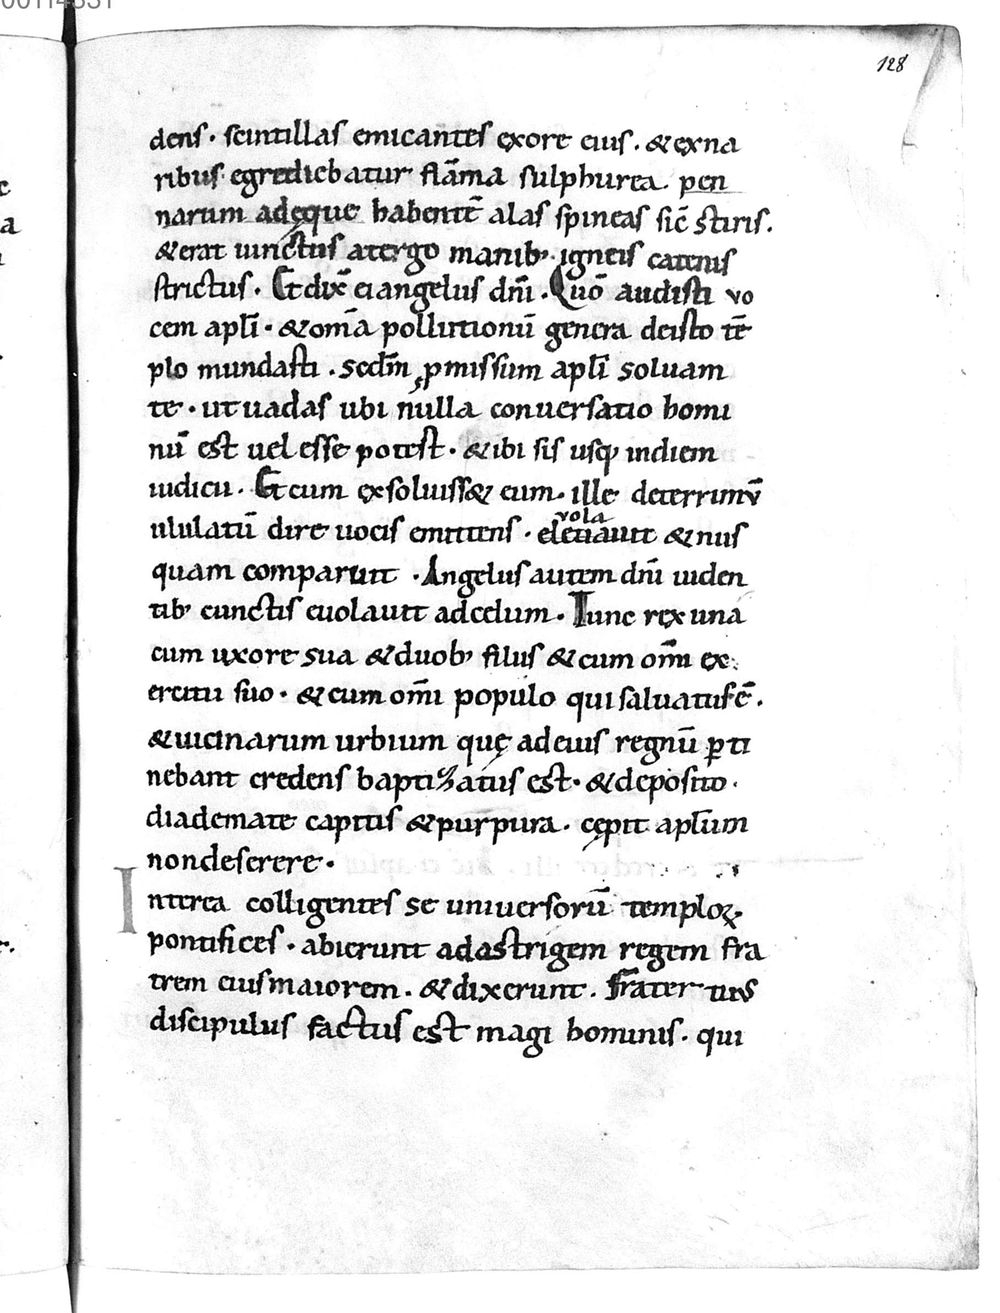 128
dens · scintillas emicantes exore eius . & exna
ribus egrediebatur flāma sulphurea . pen
narum adęque habent̄ alas spineas sic̄ stiris .
& erat uinctus atergo manib' . igneis catenis
strictus . Et dix̄ ei angelus dn̄i . Quō audisti vo
cem apl̄i · & om̄a pollutionū genera deisto tē
plo mundasti . scdm̄ ꝓmissum apl̄i soluam
te · ut uadas ubi nulla conuersatio homi
nū est uel esse potest · & ibi sis usq; indiem
iudicii . Et cum exsoluiss& eum . ille deterrimꝰ
ululatū dire uocis emittens · eleuauit & nus
vola
quam comparuit · Angelus autem dn̄i uiden
tib' cunctis euolauit adcelum . Tunc rex una
cum uxore sua & duob' filiis & cum om̄i ex
ercitu suo · & cum om̄i populo qui saluatus ē .
& uicinarum urbium quę adeius regnū ꝑti
nebant credens baptizatus est · & deposito ·
diademate capitis & purpura . cępit apl̄um
nondeserere .
Interea colligentes se uniuersorū temploꝝ .
pontifices . abierunt adastrigem regem fra
trem eius maiorem . & dixerunt . Frater tuus
discipulus factus est magi hominis . qui